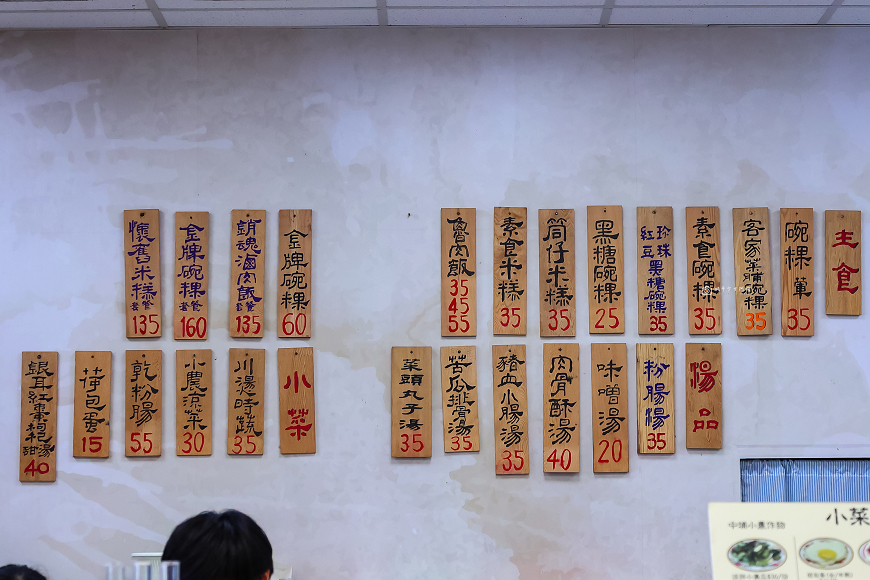 主食
碗粿 葷 35
客家菜脯碗粿 35
素食碗粿 35
珍珠紅豆黑糖碗粿 35
黑糖碗粿 25
筒仔米糕 35
素食米糕 35
魯肉飯 35 45 55
金牌碗粿 60
銷魂滷肉飯套餐 135
金牌碗粿套餐 160
懷舊米糕套餐 135
湯品
粉腸湯 35
味噌湯 20
肉骨酥湯 40
豬血小腸湯 35
苦瓜排骨湯 35
菜頭丸子湯 35
小菜
川湯時蔬 35
小農涼菜 30
乾粉腸 55
荷包蛋 15
銀耳紅棗枸杞甜湯 40
小菜
中埔小農作物